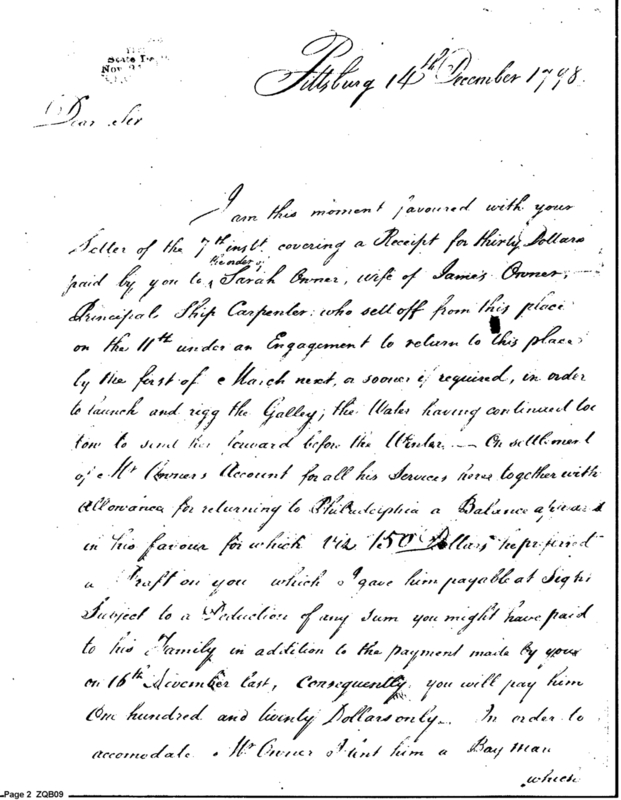 State De
Nov 21
Pittsburg 14th December 1798.
Dear Sir
I am this moment favoured with your
Letter of the 7th instt. covering a Receipt for thirty Dollars
paid by you to Sarah Owner, wife of James Owner,
Principal Ship Carpenter: who sett off from this place
on the 11th under an Engagement to return to this place
by the first of March next, or sooner if required, in order
to launch and rigg the Galley; the Water having continued too
low to send her forward before the Winter — On settlement
of Mr Owners Account for all his Services here together with
allowance for returning to Philadelphia a Balance appeared
in his favour for which viz 150 Dollars he preferred
a Draft on you which I gave him payable at Sight
Subject to a Deduction of any sum you might have paid
to his Family in addition to the payment made by you
on 16th November last, Consequently you will pay him
One hundred and twenty Dollars only. In order to
accomodate Mr Owner I lent him a Bay man
which
Page 2 ZQB09